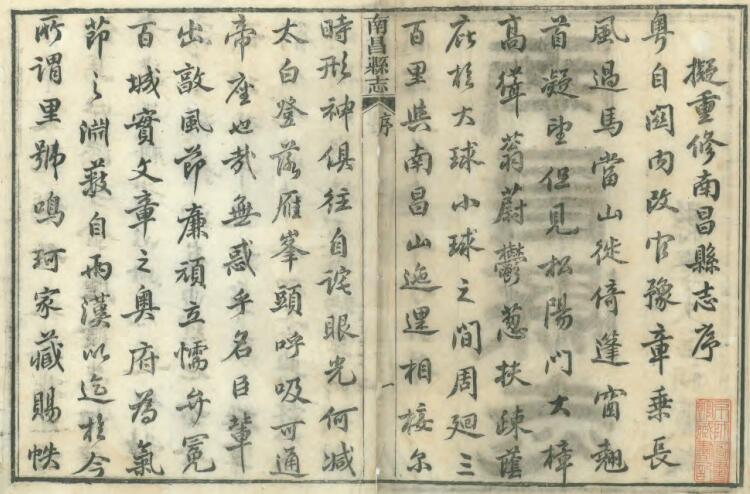 擬重修南昌縣志序
粤自関内改官豫章乗長
風過馬當山徙倚蓬窗翹
首凝望但見松陽門大樟
高聳蓊蔚鬱葱扶疎蔭
庇於大球小球之間周廻三
百里與南昌山迤邐相接尔
南昌縣志
序
一
時形神俱往自詫眼光何減
太白登落雁峯頭呼吸可通
帝座也哉無惑乎名臣輩
出敦風節廉頑立懦弁冕
百城實文章之奥府為氣
節之淵藪自兩漢以迄於今
所謂里號鳴珂家藏賜帙